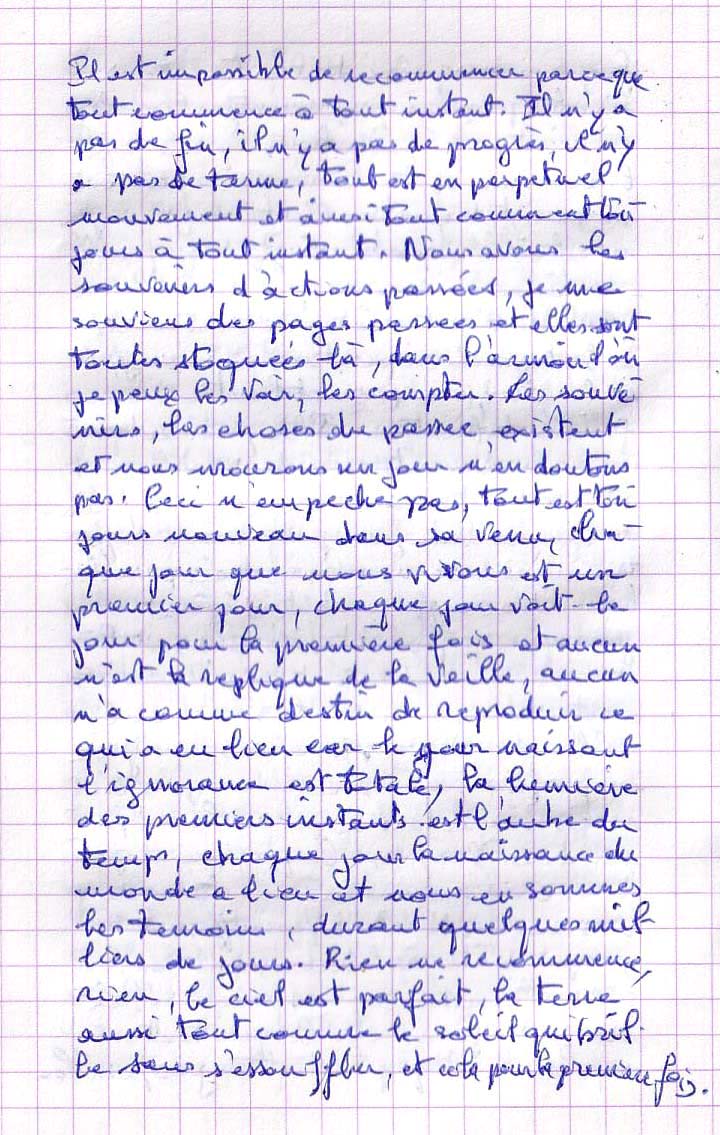 Il est impossible de recommencer parce que
tout commence à tout instant. Il n'y a
pas de fin, il n'y a pas de progrès, il n'y
a pas de terme, tout est en perpetuel
mouvement et ainsi tout commence tou-
jours à tout instant. Nous avons les
souvenirs d'actions passées, je me
souviens des pages passées et elles sont
toutes stoquées là, dans l'armoire où
je peux les voir, les compter. Les souve-
nirs, les choses du passée existent
et nous mourrons un jour n'en doutons
pas. Ceci n'empeche pas, tout est tou-
jours nouveau dans sa venu, cha-
que jour que nous vivons est un
premier jour, chaque jour voit le
jour pour la première fois et aucun
n'est la replique de la veille, aucun
n'a comme destin de reproduire ce
qui a eu lieu car le jour naissant
l'ignorance est totale, la lumière
des premiers instants est l'aube du
temps, chaque jour la naissance du
monde a lieu et nous en sommes
les temoins, durant quelques mil-
liers de jours. Rien ne recommence,
rien, le ciel est parfait, la terre
aussi tout comme le soleil qui bril-
le sans s'essouffler, et cela pour la premiere fois.